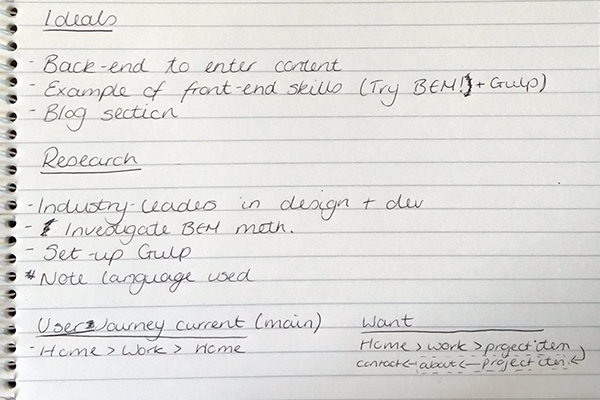 Ideals
- Back-end to enter content
- Example of front-end skills (Try BEM! + Gulp)
- Blog section
Research
- Industry-leaders in design + dev
- Investigate BEM meth.
- Set-up Gulp
* Note language used
User Journey current (main)
- Home > Work > Home
Want
Home > work > project item
contact <- about <- project item <-